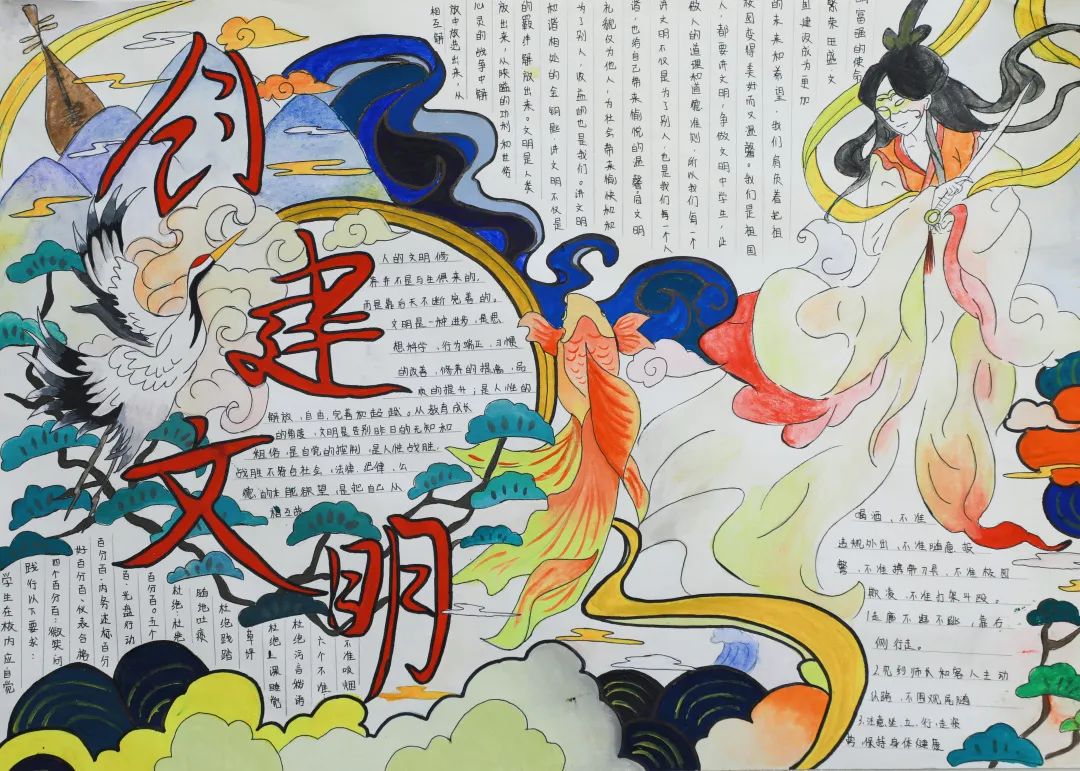 创建文明
富强的使命
繁荣旺盛,文
且建设成为更加
的未来和希望,我们肩负着把祖
校园变得美好而又温馨。我们是祖国
人,都要讲文明,争做文明中学生,让
做人的道理和道德准则,所以我们每一个
讲文明不仅是为了别人,也是我们每一个人
谐,也给自己带来愉悦的温馨。文明
礼貌仅为他人,为社会带来愉快和和
为了别人,收益的也是我们。讲文明
和谐相处的金钥匙,讲文明不仅是
的羁绊解放出来。文明是人类
放出来,从狭隘的功利和世俗
心灵的战争中解
放中放选出来,从
相互耕
人的文明修
养并不是与生俱来的,
而是靠后天不断完善的。
文明是一种进步,是思
想科学、行为端正、习惯
的改善,修养的提高,品
质的提升;是人性的
解放,自由,完善和超越。从教育成长
的角度,文明是告别昨日的无知和
粗俗,是自觉的控制,是人性战胜,
战胜不要自社会,法律,纪律,公
德的本能欲望,是把自己从
学生在校内应自觉
践行以下要求:
四个百分百:微笑问
好百分百,仪表合格
百分百,内务达标百分
百,光盘行动
百分百。五个
杜绝:杜绝
随地吐痰
杜绝践踏
草坪
杜绝上课睡觉
杜绝污言秽语
六个不准
不准吸烟
喝酒、不准
违规外出、不准随意报
警、不准携带刀具、不准校园
欺凌、不准打架斗殴。
1.走廊不跑不跳,靠右
侧行走。
2.见到师长和客人主动
认路,不围观尾随
3.注意坐、立、行、走姿
势,保持身体健康